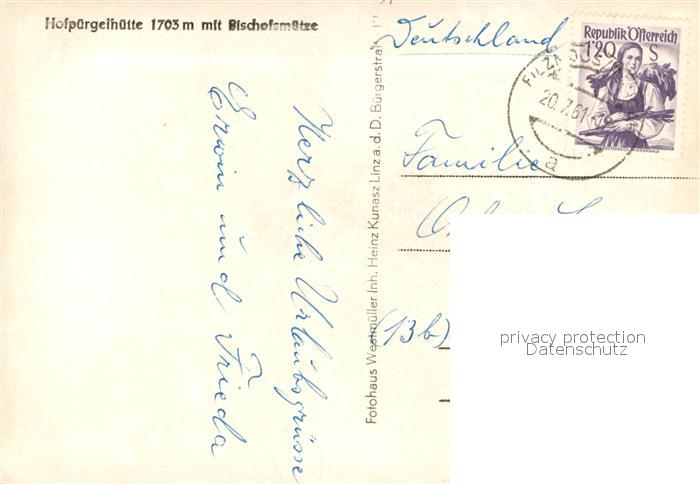 Hofpürgelhütte 1703 m mit Bischofsmütze
Herzliche Urlaubsgrüsse
Erwin und Frieda
Fotohaus Westmüller Inh. Heinz Kunasz Linz a. d. D. Bürgerstraße
Deutschland
Republik Österreich
1'20 S
FILZMOOS
20.7.61
a
Familie
(13b)
privacy protection
Datenschutz